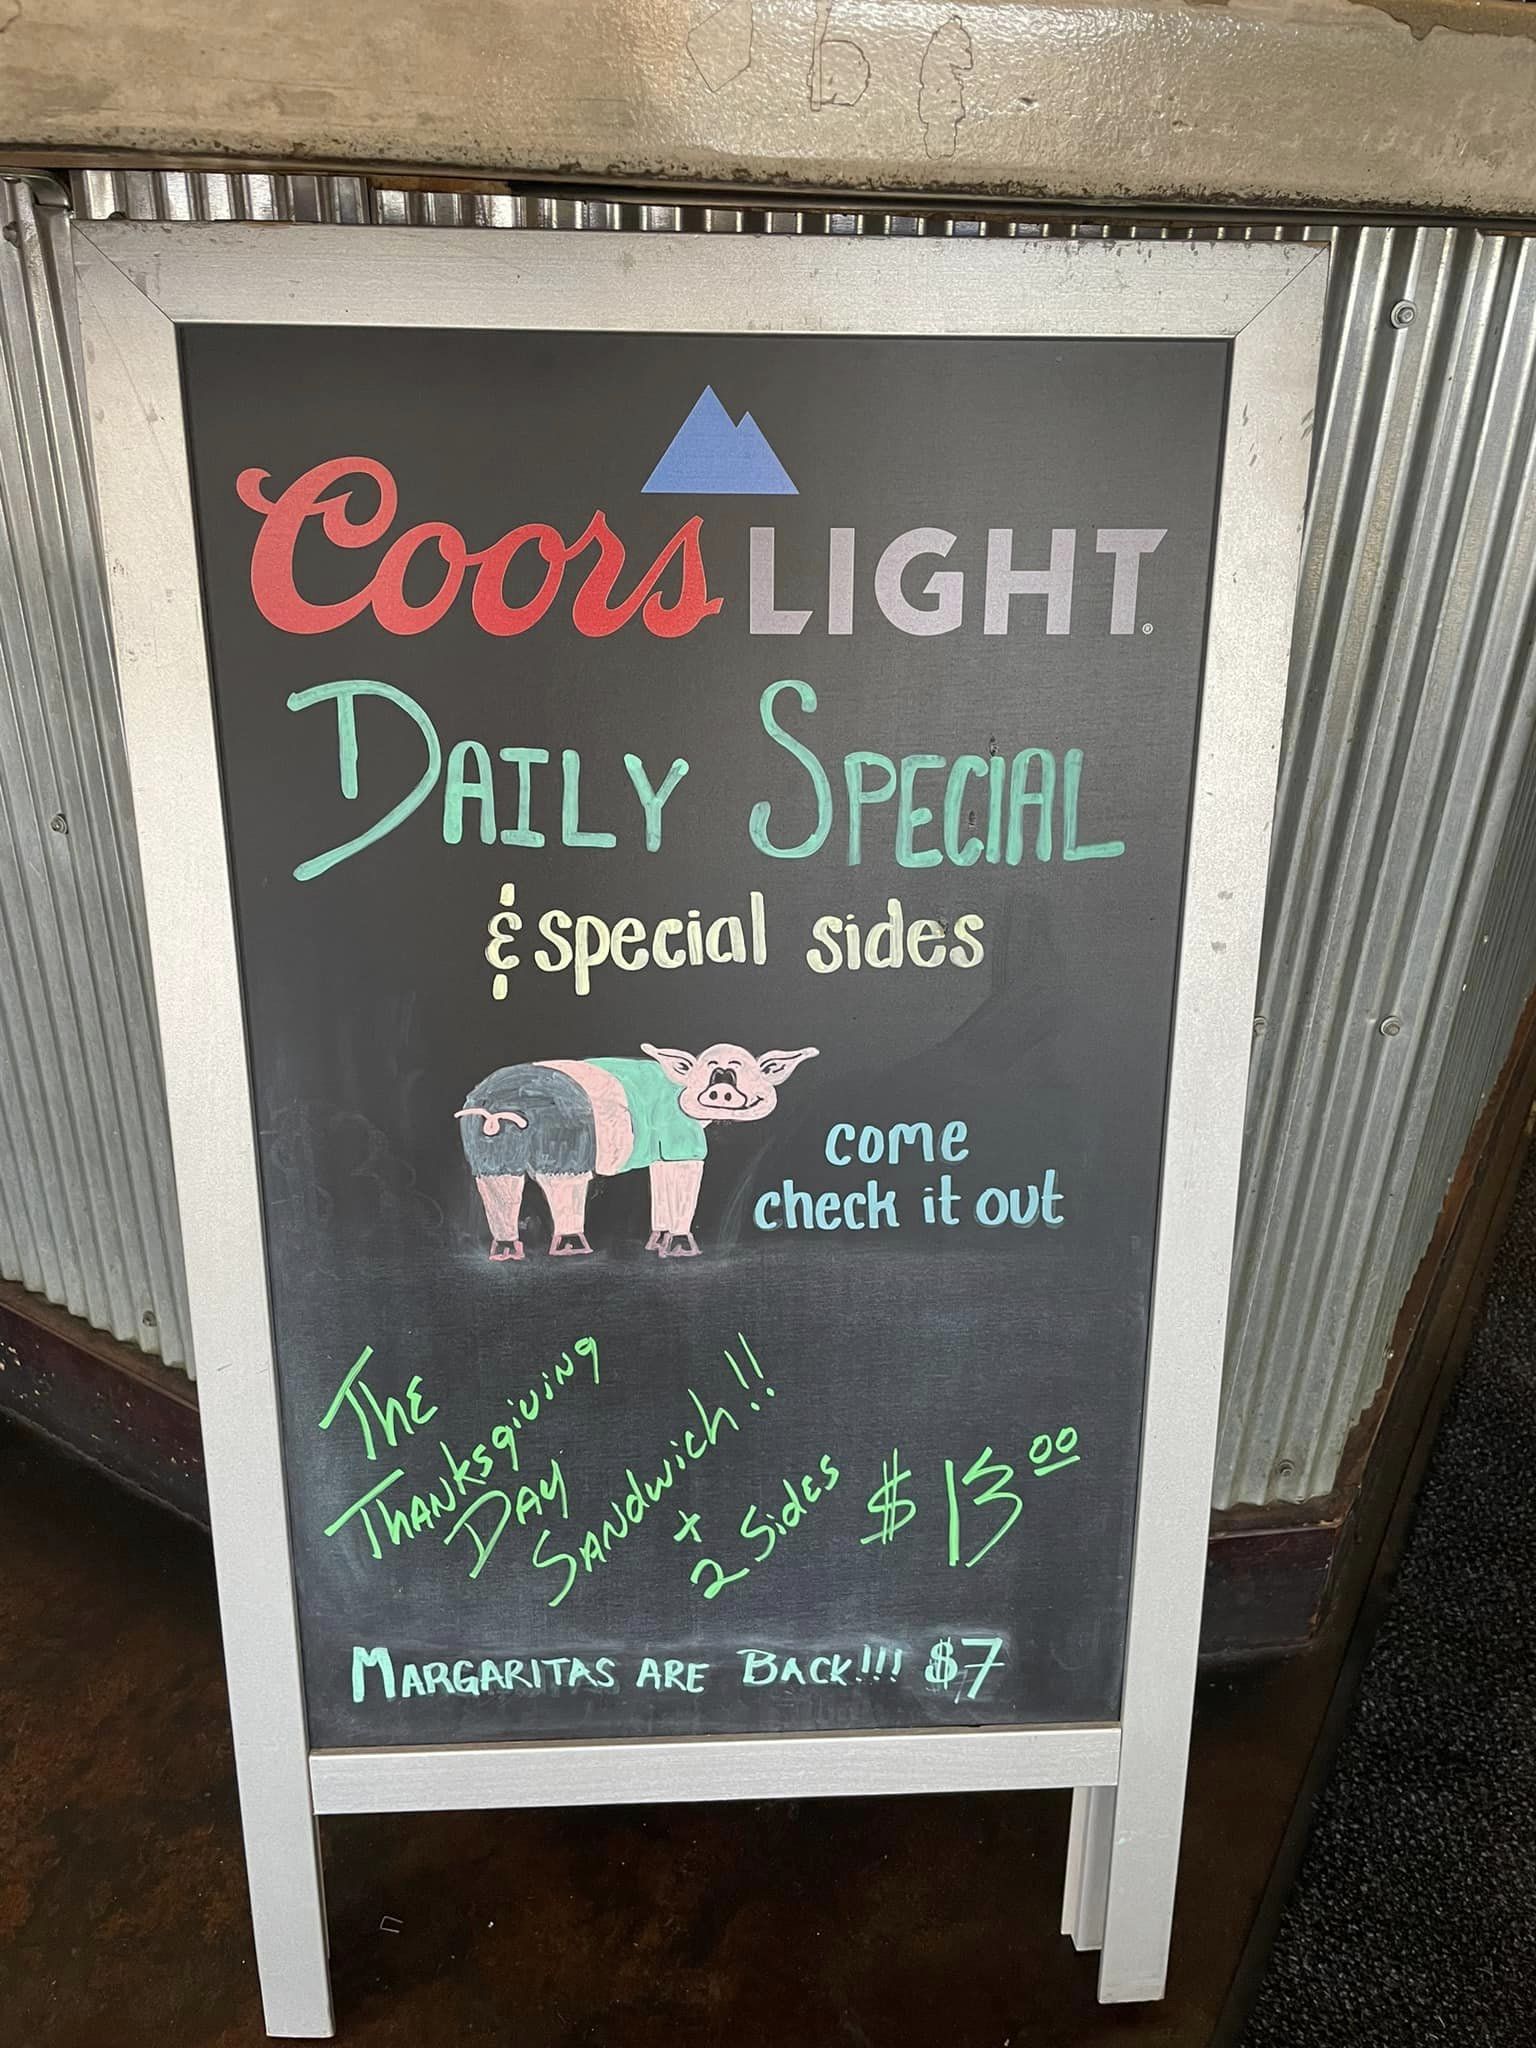 Coors LIGHT®
DAILY SPECIAL
& special sides
come
check it out
The
Thanksgiving
DAY
SANdwich!!
+
2 Sides
$13.00
MARGARITAS ARE BACK!!! $7